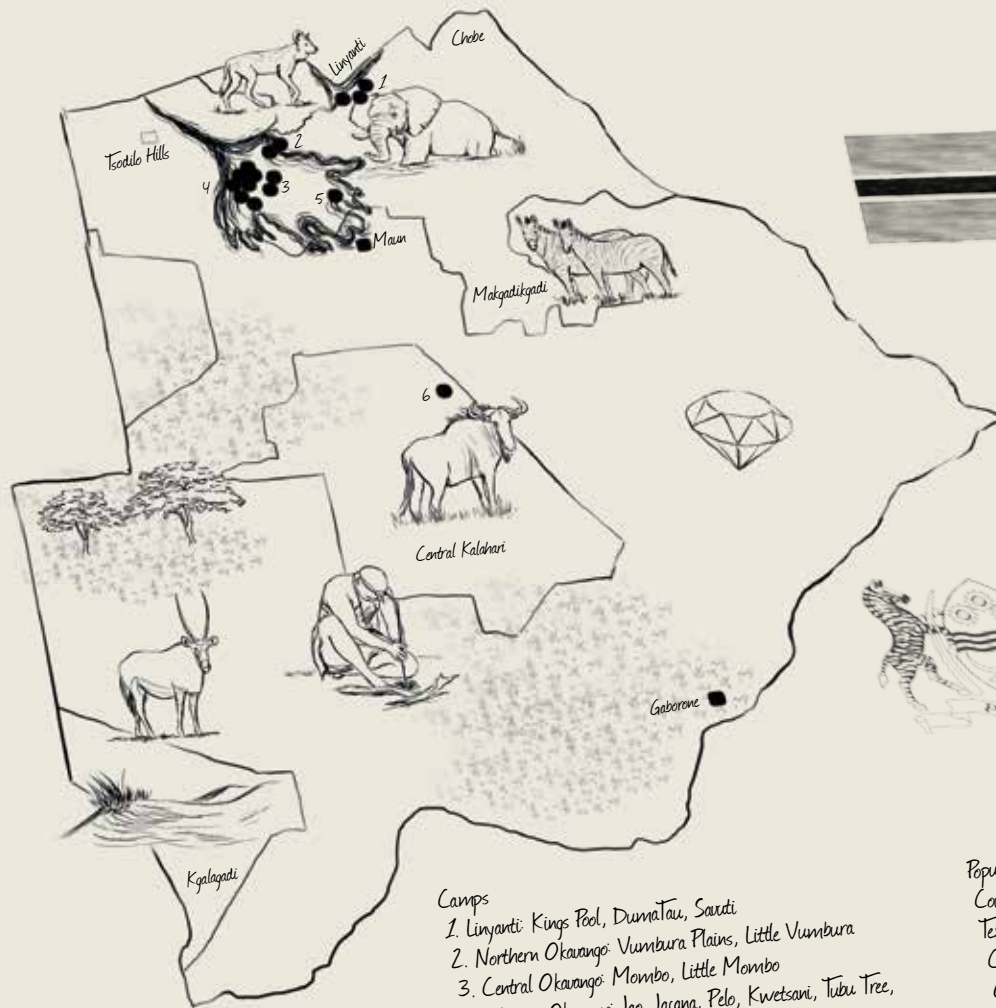 Chobe
Linyanti
1
2
Tsodilo Hills
4
3
5
Maun
Makgadikgadi
6
Central Kalahari
Gaborone
Kgalagadi
Camps
1. Linyanti: Kings Pool, DumaTau, Savuti
2. Northern Okavango: Vumbura Plains, Little Vumbura
3. Central Okavango: Mombo, Little Mombo
Jao, Jacana, Pelo, Kwetsani, Tubu Tree,